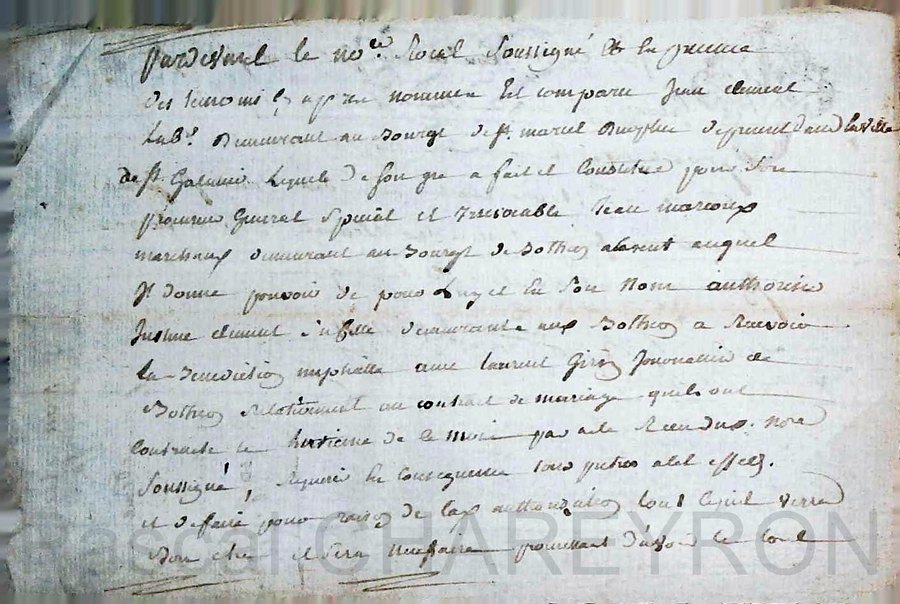 pardevant le no.re Royal soussigné et en presence
des temoins cy apres nommés est comparu Jean clement
Lab.r demeurant au Bourg de st. marcel present dans la ville
de st. Galmier Lequel de son gre a fait et Constitué pour son
procureur General special et irrevocable Jean marcoux
marchand demeurant au Bourg de Bothéon absent auquel
Il donne pouvoir de pour Luy et En son Nom authoriser
clement sa fille demeurante aux Bothéon a Recevoir
La Benediction nuptialle avec laurent de
Bothéon Relativement au contrat de mariage quels ont
contracté le huitieme de ce mois par acte Receu du no.re
soussigné, Requerir En consequence tous a cet effet.
et de faire pour raison de la authorization tout ce quil verra
Bon etre et sera necessaire promettant d'avoir le tout
Pascal CHAREYRON